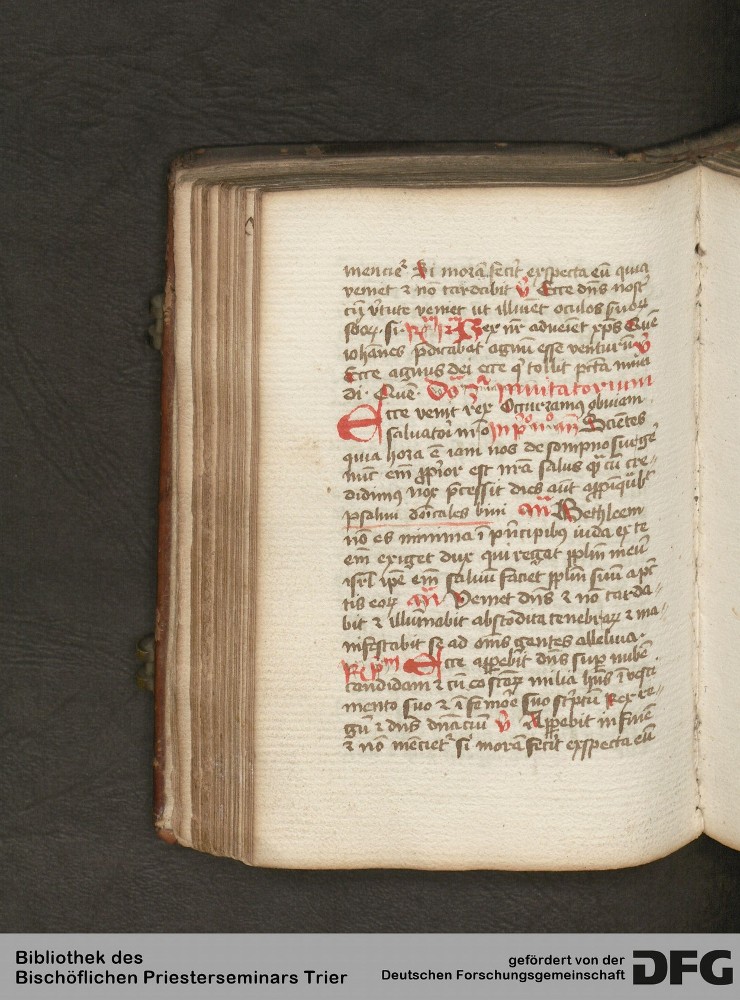 mencie᷑ Si morā fecit exspecta eū quia
veniet ⁊ nō tardabit v̄ Ecce dn̄s nost̄
cū v̄tute veniet ut illūiet oculos
si Rex nr̄ adveniet xp̄s Quē
iohānes p̄dicabat agnū esse venturū v̄
Ecce agnus dei ecce q̇ tollit pctā mū
di Quē Do᷒ 3ᵃ Invitatorium
Ecce venit rex Occurramꝰ obviam
salvatori nr̄o Scientes
quia hora ē iam nos de sompno surge᷑
nūc em̄ ꝓpior est nr̄a salus qᷓ cū cre-
didimꝰ nox p̄cessit dies aūt
psalmi dominicales bini an̄ Bethleem
nō es minima ī p̄ncipibꝰ iuda ex te
em̄ exiget dux qui regat pplm̄ meū
isrl̄ ip̄e em̄ saluū faciet pplm̄ suū a pc̄
tis eoꝝ an̄ Veniet dn̄s ⁊ nō tarda-
bit ⁊ illūinabit abscondita tenebraꝝ ⁊ ma-
nifestabit se ad om̄s gentes alleluia
R Ecce apparebit dn̄s suꝑ nubē
candidam ⁊ cū eo sctōꝝ milia hn̄s ī vesti
mento suo ⁊ ī femōe suo sc̄ptū Rex re-
gū ⁊ dn̄s dn̄anciū v̄ Apparebit in finē
⁊ nō mēciet᷑ si morā fecit exspecta eū
Bibliothek des
Bischöflichen Priesterseminars Trier
gefördert von der
Deutschen Forschungsgemeinschaft
DFG